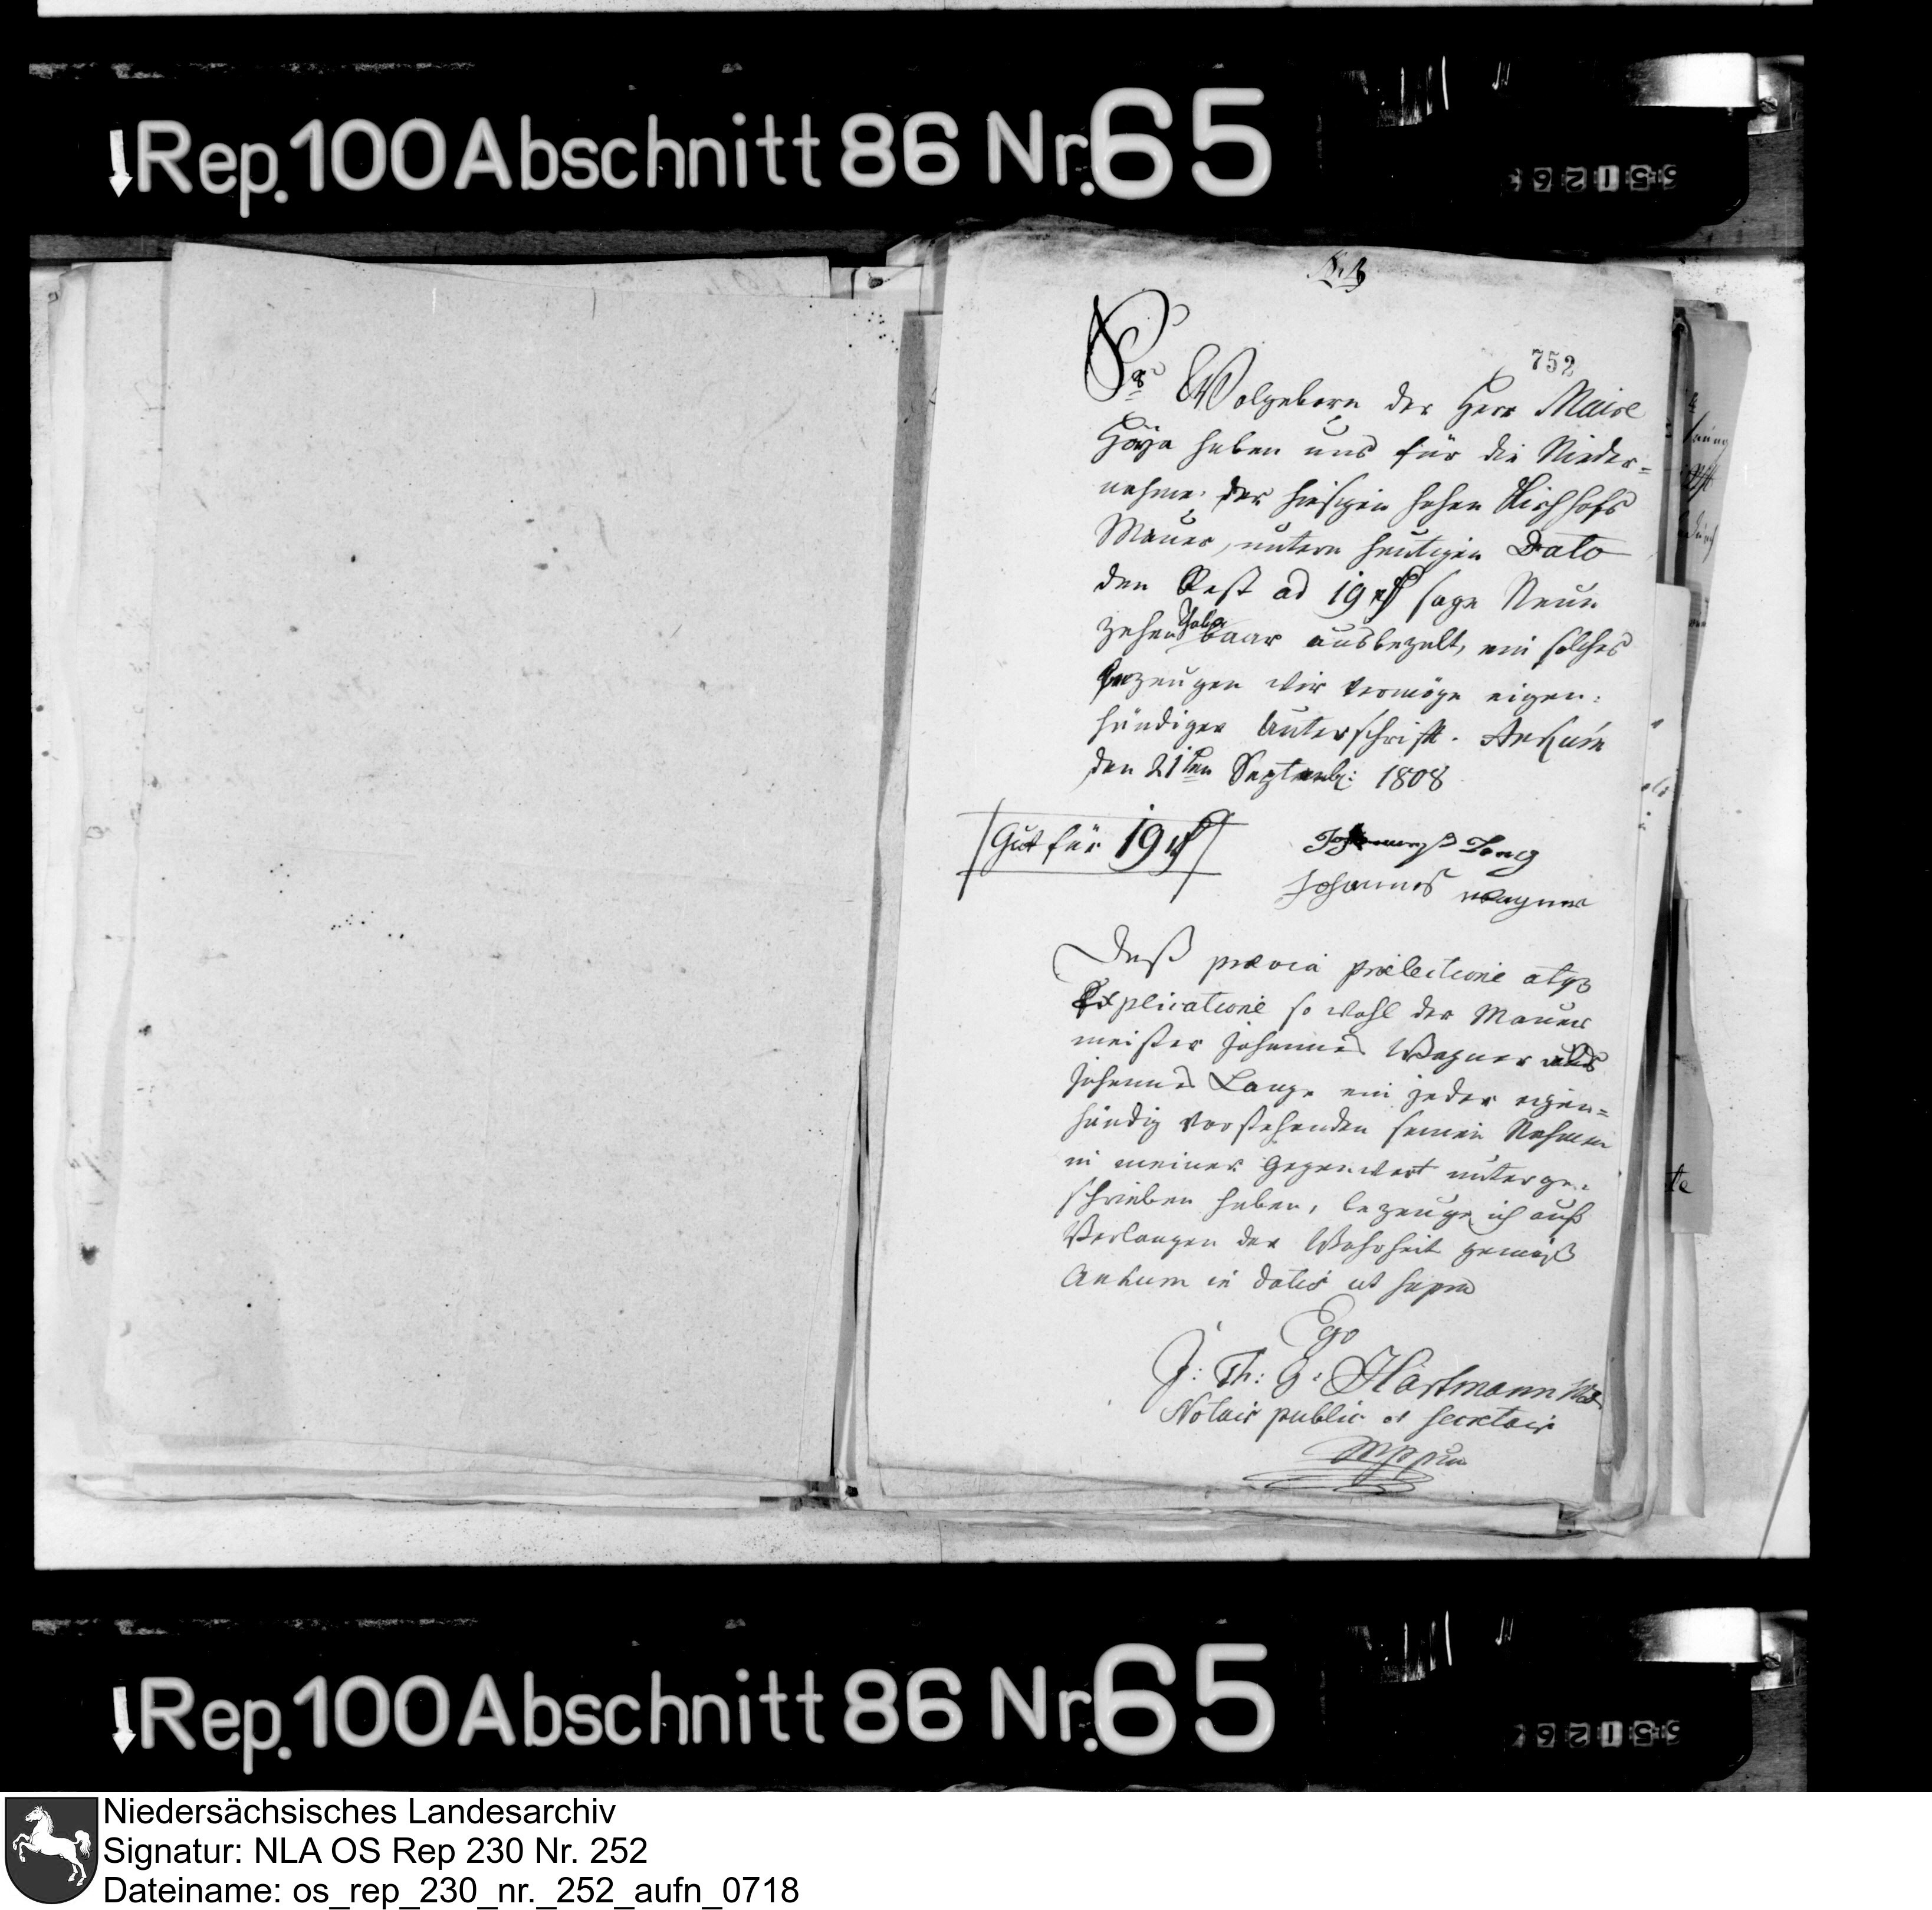 Rep. 100 Abschnitt 86 Nr. 65
752
Sr Wolgebern der Herr Maire
Höya haben uns für die Nieder=
nahme der hiesigen hohen Kirchhofs
Mauer, untern heutigen Dato
den Rest ad 19 rthl sage Neun
zehen Thaler baar ausbezalt, ein solches
bezeugen wir vermöge eigen=
händiger Unterschrift. Ankum
den 21ten Septemb: 1808
Gut für 19 rthl
Johannes Lang
Johannes wagner
Daß prævia prælectione atq
Explicatione so wohl der Mauer
meister Johannes Wagner als
Johannes Lange ein jeder eigen=
händig vorstehenden seinen Nahmen
in meiner Gegenwart unterge=
schrieben haben, bezeuge ich auf
Verlangen der Wahrheit gemäß
Ankum in dato ut supra
Ego
J: Th: G: Hartmann
Notair public et secretair
mppria
Rep. 100 Abschnitt 86 Nr. 65
Niedersächsisches Landesarchiv
Signatur: NLA OS Rep 230 Nr. 252
Dateiname: os_rep_230_nr._252_aufn_0718